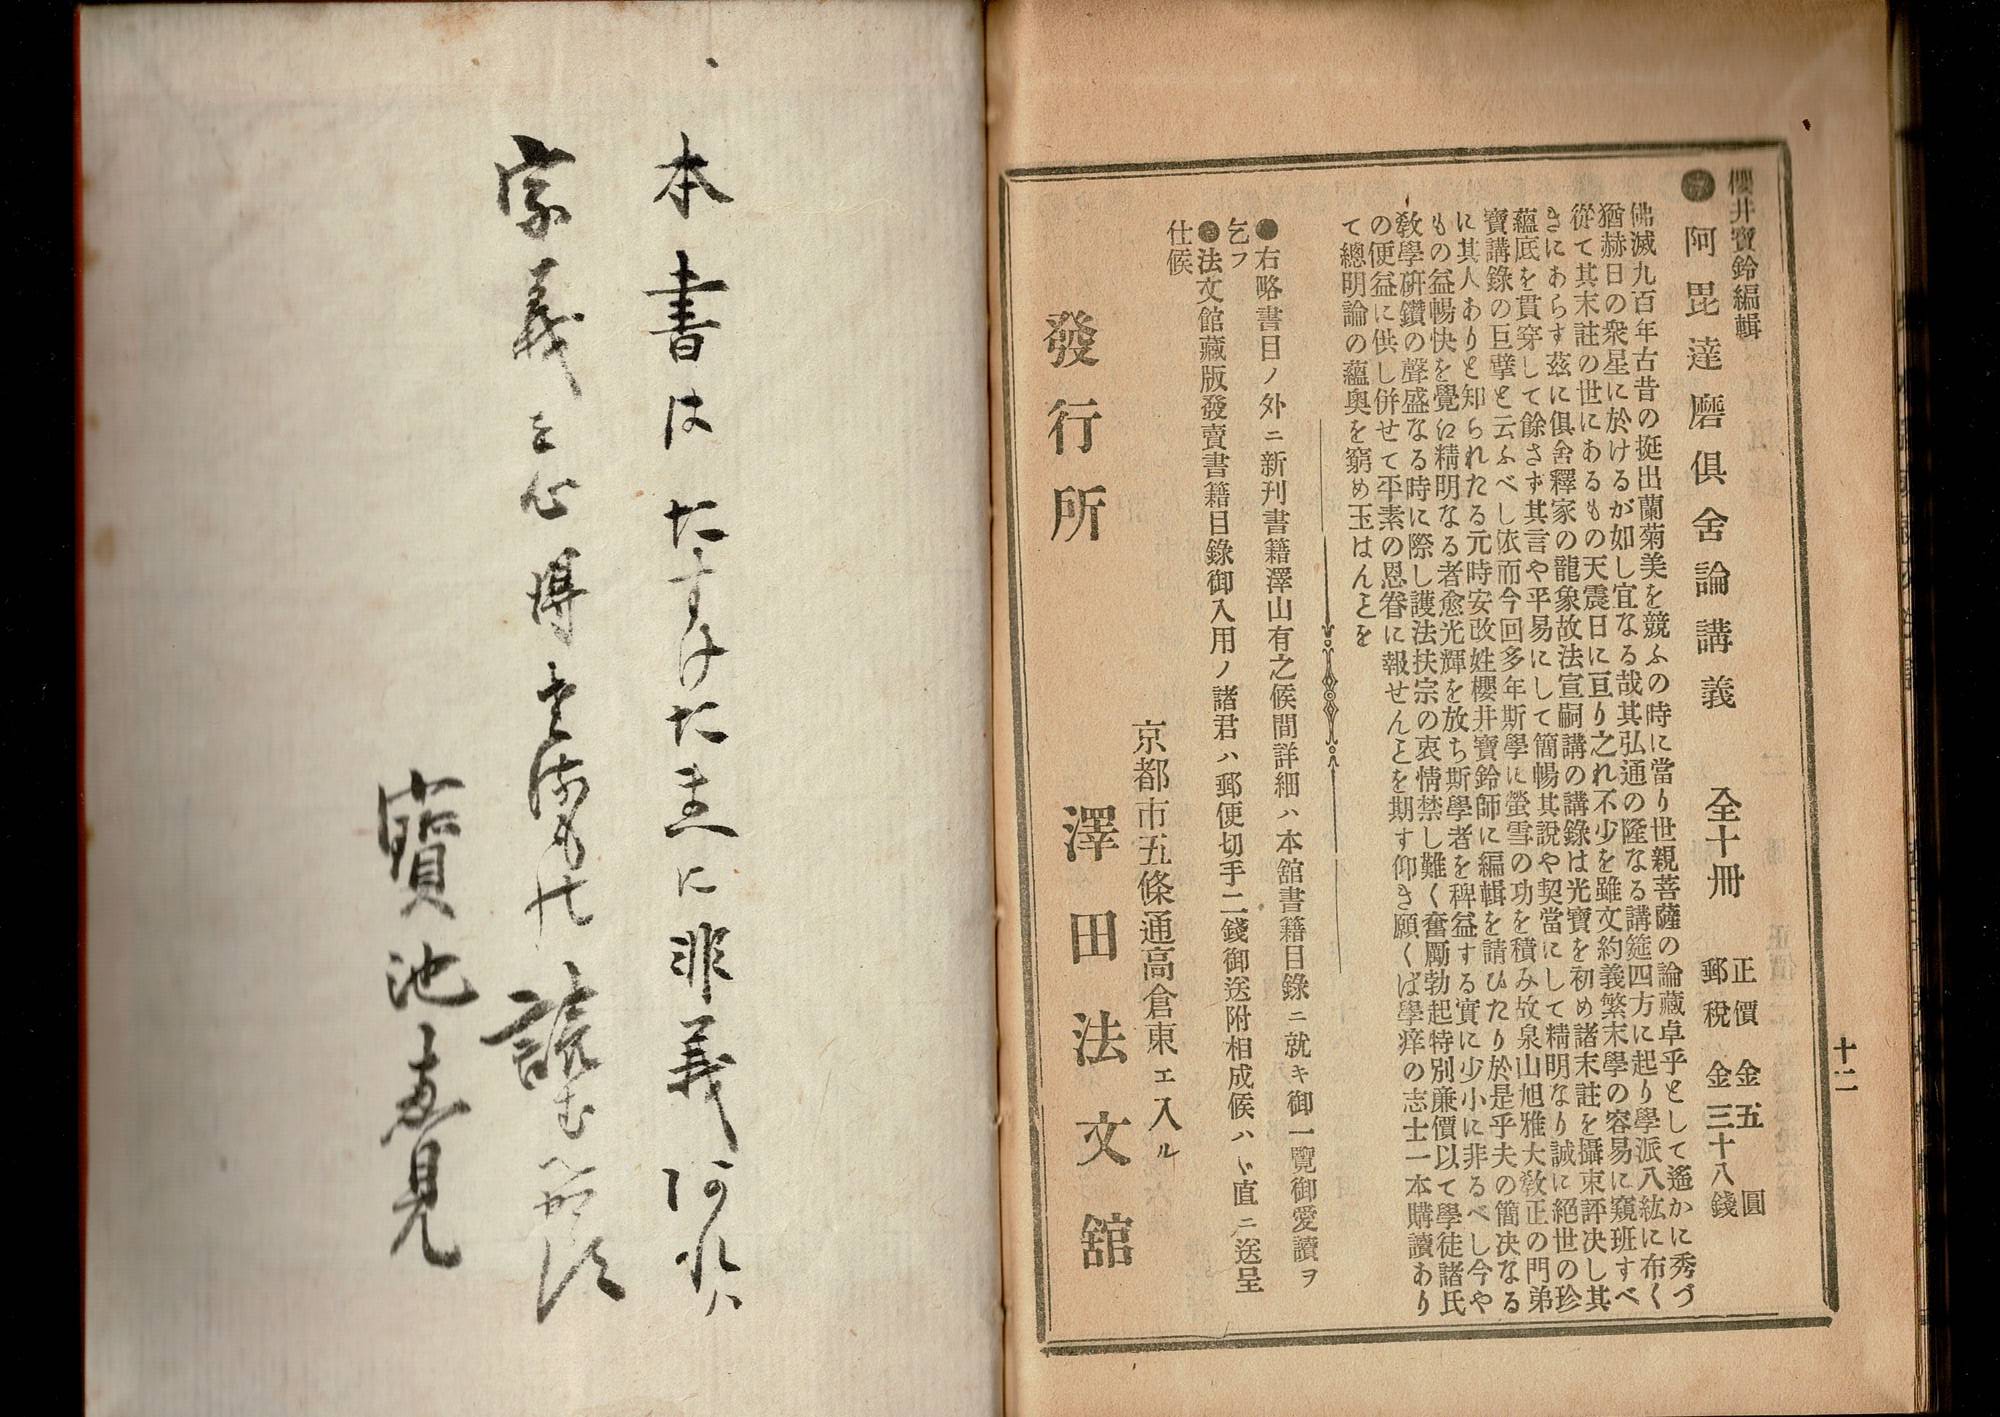 十二
櫻井寶鈴編輯
阿毘達磨俱舍論講義 全十冊 正價金五圓 郵稅金三十八錢
佛滅九百年古昔の挺出蘭菊美を競ふの時に當り世親菩薩の論藏卓乎として遙かに秀づ
猶赫日の衆星に於けるが如し宜なる哉其弘通の隆なる講筵四方に起り學派八紘に布く
從て其末註の世にあるもの天震日に亘り之れ不少を雖文約義繁末學の容易に窺班すべ
きにあらす茲に俱舍釋家の龍象故法宣嗣講の講錄は光寶を初め諸末註を攝束評決し其
蘊底を貫穿して餘さず其言や平易にして簡暢其說や契當にして精明なり誠に絕世の珍
寶講錄の巨擘と云ふべし依而今回多年斯學に螢雪の功を積み故泉山旭雅大敎正の門弟
に其人ありと知られたる元時安改姓櫻井寶鈴師に編輯を請ひたり於是乎夫の簡決なる
もの益暢快を覺ゑ精明なる者愈光輝を放ち斯學者を稗益する實に少小に非るべし今や
敎學硏鑽の聲盛なる時に際し護法扶宗の衷情禁し難く奮勵勃起特別廉價以て學徒諸氏
の便益に供し併せて平素の恩眷に報せんとを期す仰き願くば學痒の志士一本購讀あり
て總明論の蘊奥を窮め玉はんとを
●右略書目ノ外ニ新刊書籍澤山有之候間詳細ハ本舘書籍目錄ニ就キ御一覽御愛讀ヲ
乞フ
●法文館藏版發賣書籍目錄御入用ノ諸君ハ郵便切手二錢御送附相成候ハヽ直ニ送呈
仕候
京都市五條通高倉東エ入ル
發行所 澤田法文舘
本書は たすけたまへに非義
宗義 心得 讀む
寶池惠見